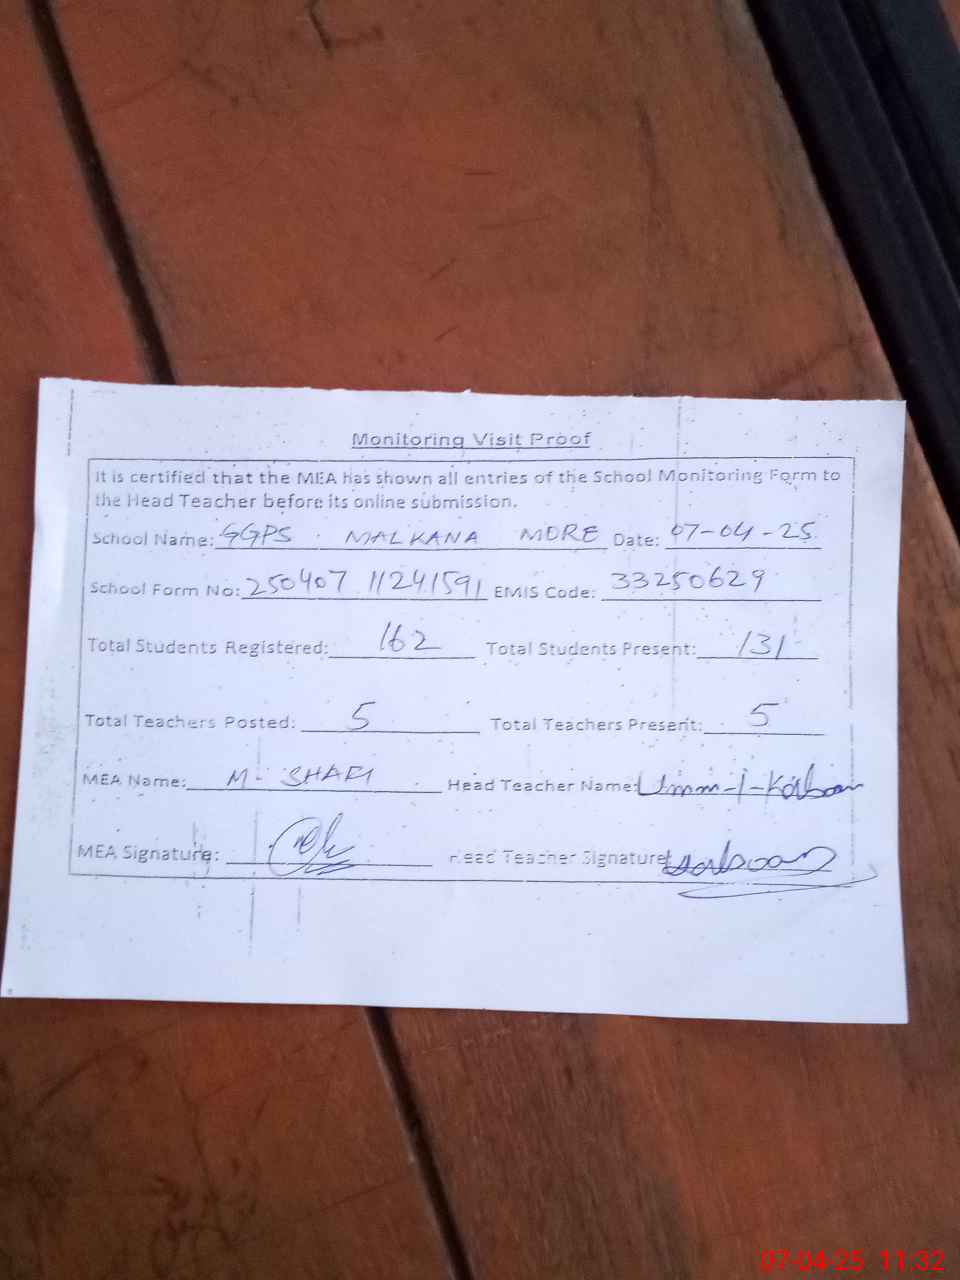 Monitoring Visit Proof
It is certified that the MEA has shown all entries of the School Monitoring Form to
the Head Teacher before its online submission.
School Name: GGPS MALKANA MORE Date: 07-04-25
School Form No: 250407 11241591 EMIS Code: 33250629
Total Students Registered: 162 Total Students Present: 131
Total Teachers Posted: 5 Total Teachers Present: 5
MEA Name: M. SHAFI Head Teacher Name: Umm-I-
MEA Signature: Head Teacher Signature:
07-04-25 11:32